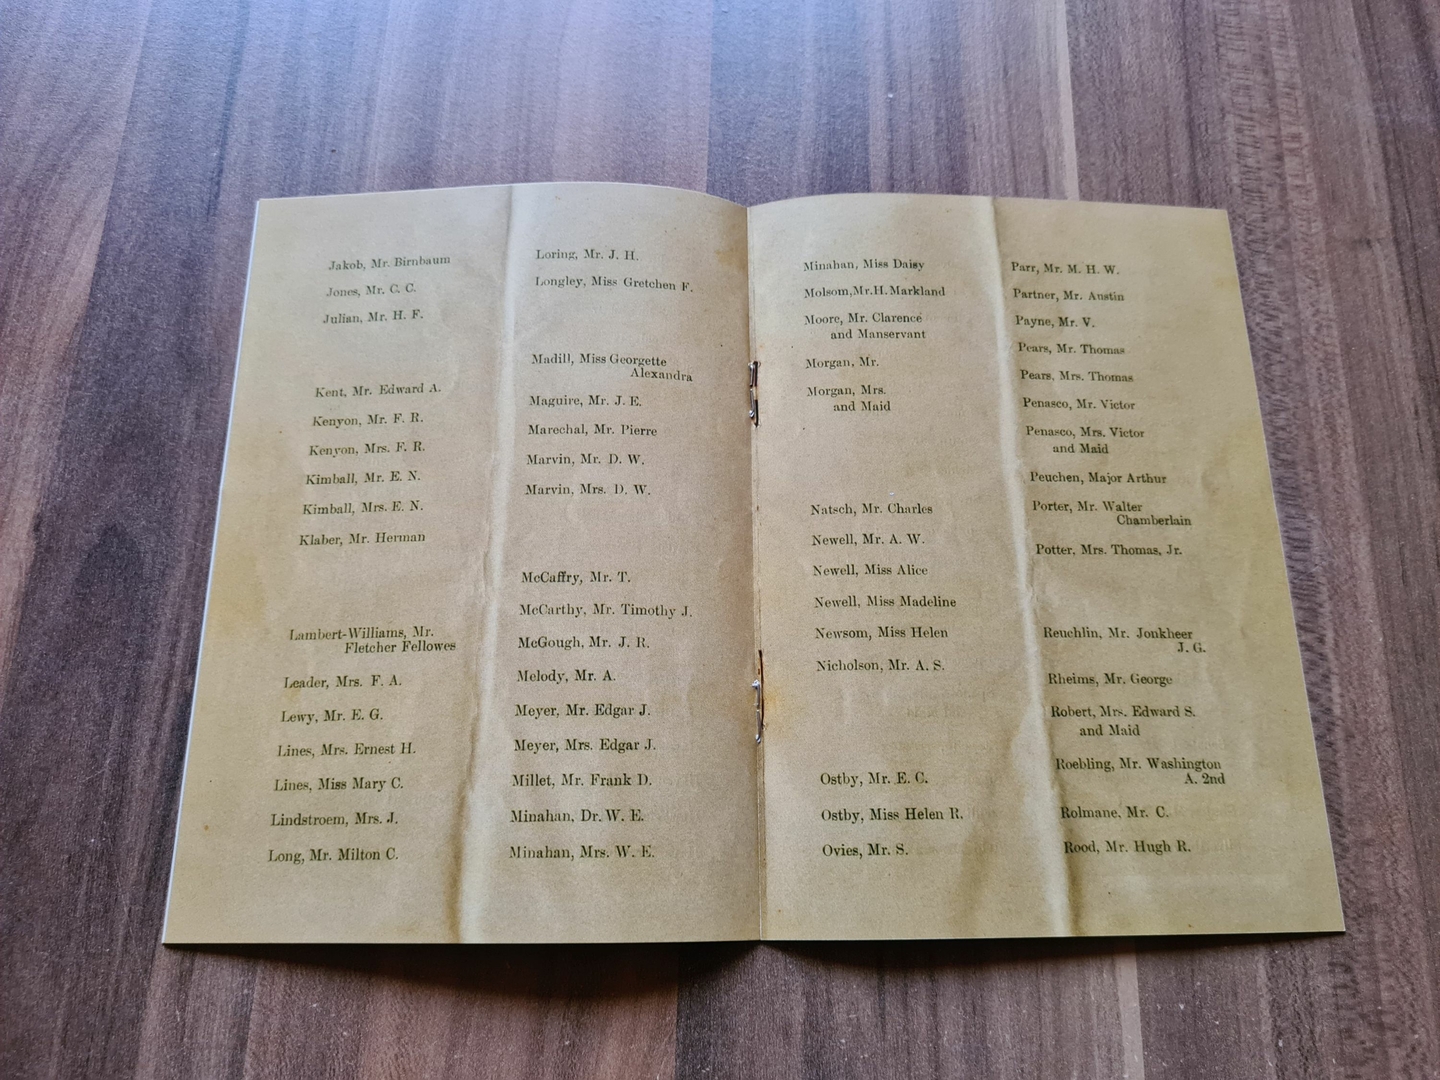 Jakob, Mr. Birnbaum
Jones, Mr. C. C.
Julian, Mr. H. F.
Kent, Mr. Edward A.
Kenyon, Mr. F. R.
Kenyon, Mrs. F. R.
Kimball, Mr. E. N.
Kimball, Mrs. E. N.
Klaber, Mr. Herman
Lambert-Williams, Mr.
Fletcher Fellowes
Leader, Mrs. F. A.
Lewy, Mr. E. G.
Lines, Mrs. Ernest H.
Lines, Miss Mary C.
Lindstroem, Mrs. J.
Long, Mr. Milton C.
Loring, Mr. J. H.
Longley, Miss Gretchen F.
Madill, Miss Georgette
Alexandra
Maguire, Mr. J. E.
Marechal, Mr. Pierre
Marvin, Mr. D. W.
Marvin, Mrs. D. W.
McCaffry, Mr. T.
McCarthy, Mr. Timothy J.
McGough, Mr. J. R.
Melody, Mr. A.
Meyer, Mr. Edgar J.
Meyer, Mrs. Edgar J.
Millet, Mr. Frank D.
Minahan, Dr. W. E.
Minahan, Mrs. W. E.
Minahan, Miss Daisy
Molsom,Mr.H. Markland
Moore, Mr. Clarence
and Manservant
Morgan, Mr.
Morgan, Mrs.
and Maid
Natsch, Mr. Charles
Newell, Mr. A. W.
Newell, Miss Alice
Newell, Miss Madeline
Newsom, Miss Helen
Nicholson, Mr. A. S.
Ostby, Mr. E. C.
Ostby, Miss Helen R.
Ovies, Mr. S.
Parr, Mr. M. H. W.
Partner, Mr. Austin
Payne, Mr. V.
Pears, Mr. Thomas
Pears, Mrs. Thomas
Penasco, Mr. Victor
Penasco, Mrs. Victor
and Maid
Peuchen, Major Arthur
Porter, Mr. Walter
Chamberlain
Potter, Mrs. Thomas, Jr.
Reuchlin, Mr. Jonkheer
J. G.
Rheims, Mr. George
Robert, Mrs. Edward S.
and Maid
Roebling, Mr. Washington
A. 2nd
Rolmane, Mr. C.
Rood, Mr. Hugh R.